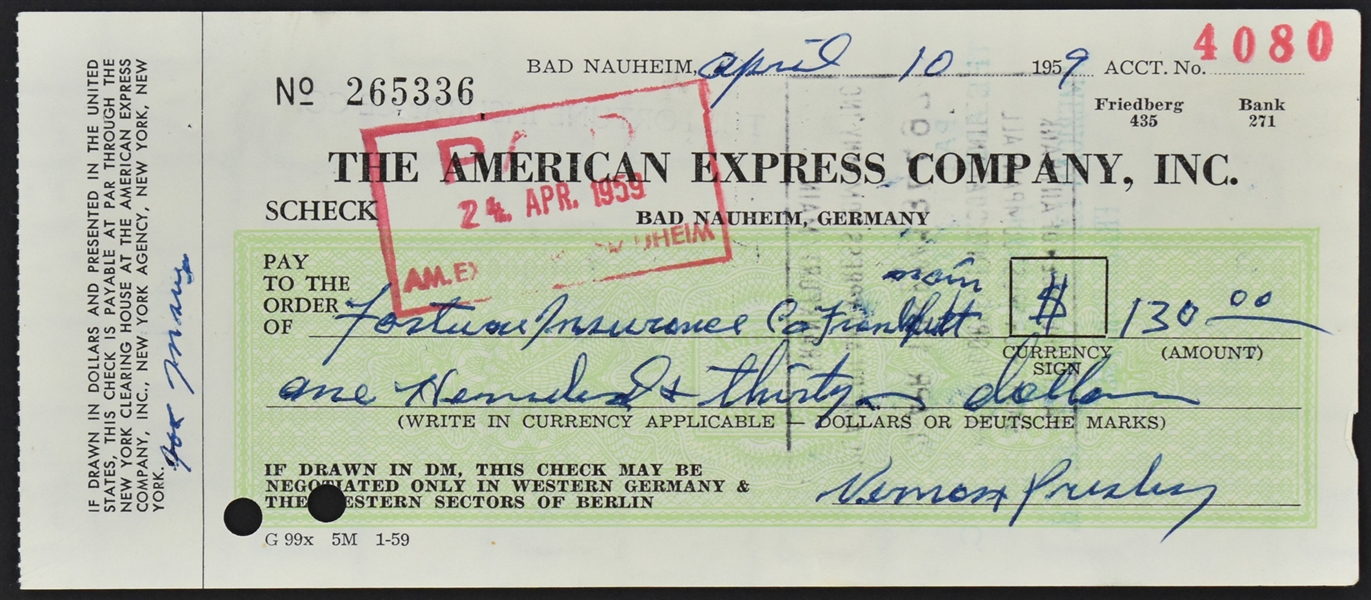 4080
BAD NAUHEIM, april 10 1959 ACCT. No.
Nº 265336
Friedberg 435
Bank 271
THE AMERICAN EXPRESS COMPANY, INC.
SCHECK
BAD NAUHEIM, GERMANY
24. APR. 1959
AM. EX
UHEIM
PAY
TO THE
ORDER
OF
main
Insurance Co
$ 130 00
CURRENCY
SIGN
(AMOUNT)
one Hundred & thirty dollars
(WRITE IN CURRENCY APPLICABLE — DOLLARS OR DEUTSCHE MARKS)
IF DRAWN IN DM, THIS CHECK MAY BE
NEGOTIATED ONLY IN WESTERN GERMANY &
THE WESTERN SECTORS OF BERLIN
Vernon Presley
G 99x 5M 1-59
IF DRAWN IN DOLLARS AND PRESENTED IN THE UNITED
STATES, THIS CHECK IS PAYABLE AT PAR THROUGH THE
NEW YORK CLEARING HOUSE AT THE AMERICAN EXPRESS
COMPANY, INC., NEW YORK AGENCY, NEW YORK, NEW
YORK.